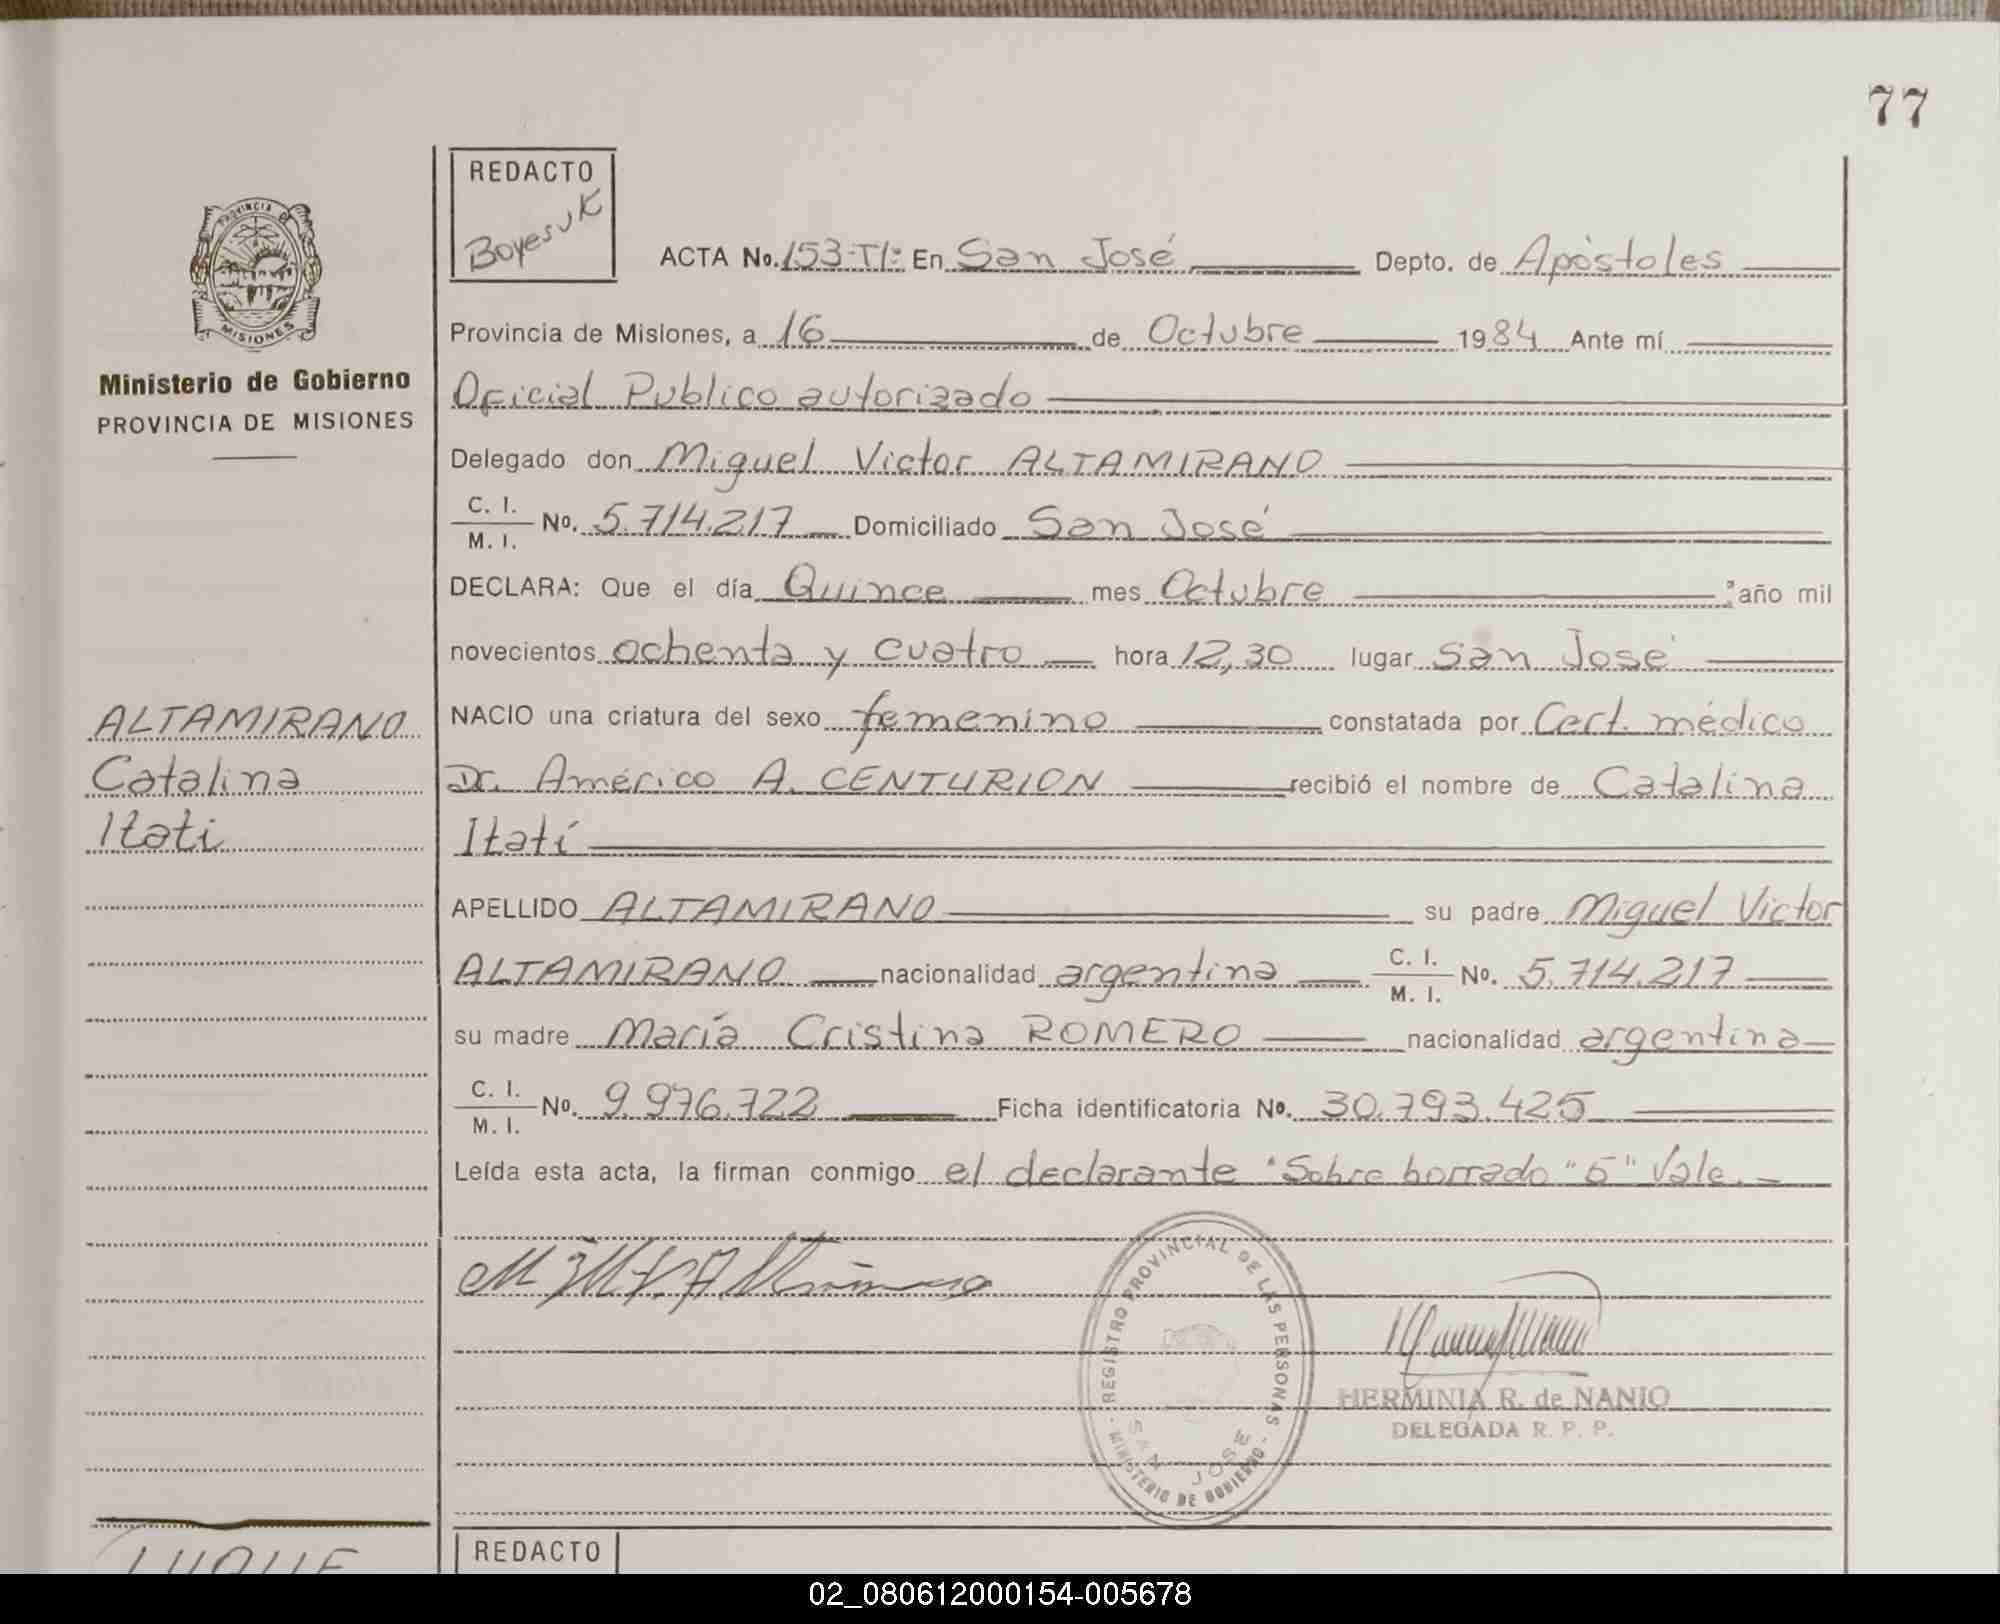 77
PROVINCIA DE
MISIONES
Ministerio de Gobierno
PROVINCIA DE MISIONES
ALTAMIRANO
Catalina
Itati
REDACTO
Boyesuk
ACTA No. 153-T1: En San José Depto. de Apóstoles
Provincia de Misiones, a 16 de Octubre 1984 Ante mí
Oficial Publico autorizado
Delegado don Miguel Victor ALTAMIRANO
C. I.
M. I. No. 5.714.217 Domiciliado San José
DECLARA: Que el día Quince mes Octubre año mil
novecientos ochenta y cuatro hora 12,30 lugar San José
NACIO una criatura del sexo femenino constatada por Cert. médico
Dr. Américo A. CENTURION recibió el nombre de Catalina
Itatí
APELLIDO ALTAMIRANO su padre Miguel Victor
ALTAMIRANO nacionalidad argentina C. I. M. I. No. 5.714.217
su madre María Cristina ROMERO nacionalidad argentina
C. I.
M. I. No. 9.976.722 Ficha identificatoria No. 30.793.425
Leída esta acta, la firman conmigo el declarante "Sobre borrado "5" Vale.-
REGISTRO PROVINCIAL DE LAS PERSONAS
SAN JOSE
MINISTERIO DE GOBIERNO
HERMINIA R. de NANIO
DELEGADA R. P. P.
LUQUE
REDACTO
02_080612000154-005678